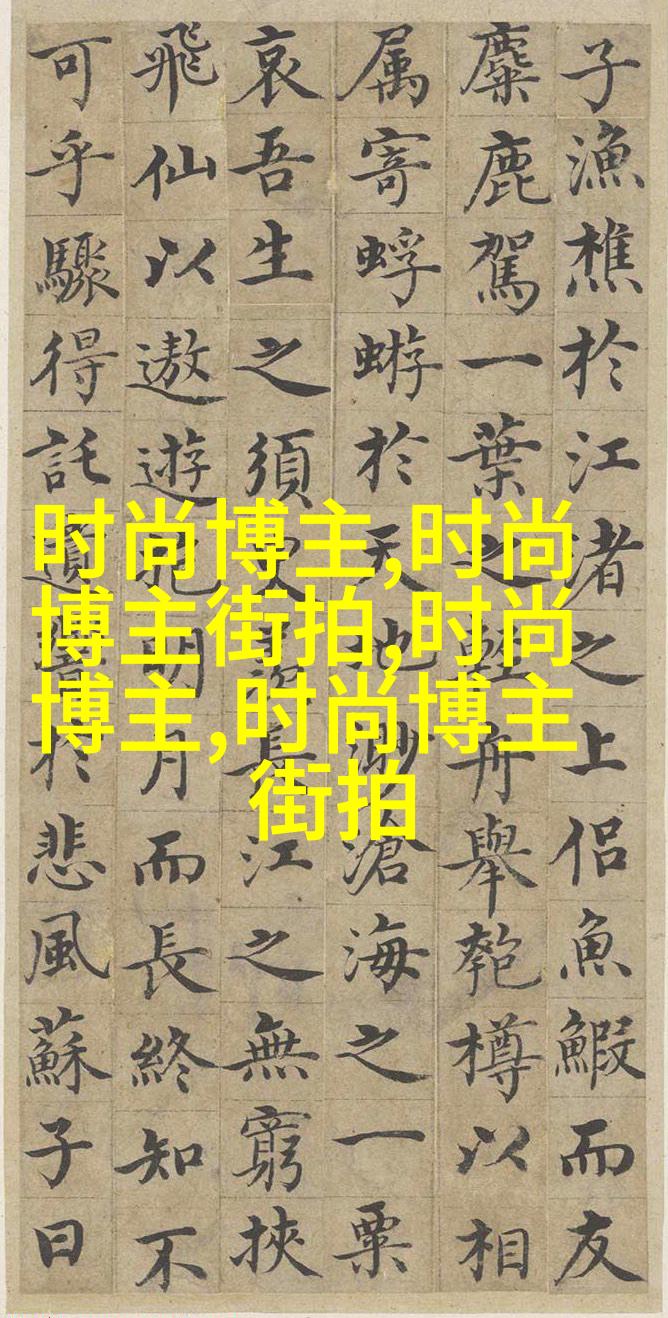 子漁樵於江渚之上侶魚鰕而友
麋鹿駕一葉之輕舟舉匏樽以相
属寄蜉蝣於天地渺滄海之一粟
哀吾生之須臾羡長江之無窮挾
飛仙以遨遊抱明月而長終知不
可乎驟得託遺響於悲風蘇子曰
时尚博主,时尚
博主街拍,时尚
博主,时尚博主
街拍